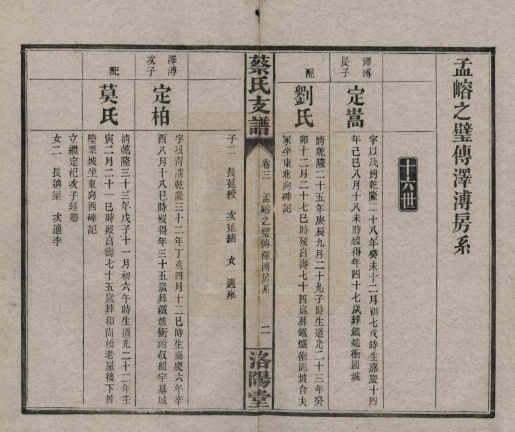 孟嵱之璧傳澤溥房系
十六世
澤溥
長子
定嵩
字以 清乾隆二十八年癸未十二月初七戌時生嘉慶十四
年己巳八月十八未時歿得年四十七歲葬鐵爐衝圓坡
配
劉氏
清乾隆二十五年庚辰九月二十九子時生道光二十三年癸
卯十二月二十七巳時歿享壽七十四歲葬鐵爐衝圓坡合夫
冢坐東北向碑記
子二 長延綬 次延緒 女一適
蔡氏支譜
卷三 孟嵱之璧傳澤溥房系
二
洛陽堂
澤溥
次子
定柏
字以 清乾隆三十二年丁亥四月十二巳時生嘉慶六年辛
酉八月十八巳時歿得年三十五歲葬鐵爐衝 叔紹宇墓
配
莫氏
清乾隆三十三年戊子十一月初六午時生道光二十二年壬
寅二月二十一巳時歿享壽七十五歲葬和尚橋老屋後下首
陸栗坡坐東向西碑記
立繼定 次子延
女二 長適梁 次適李